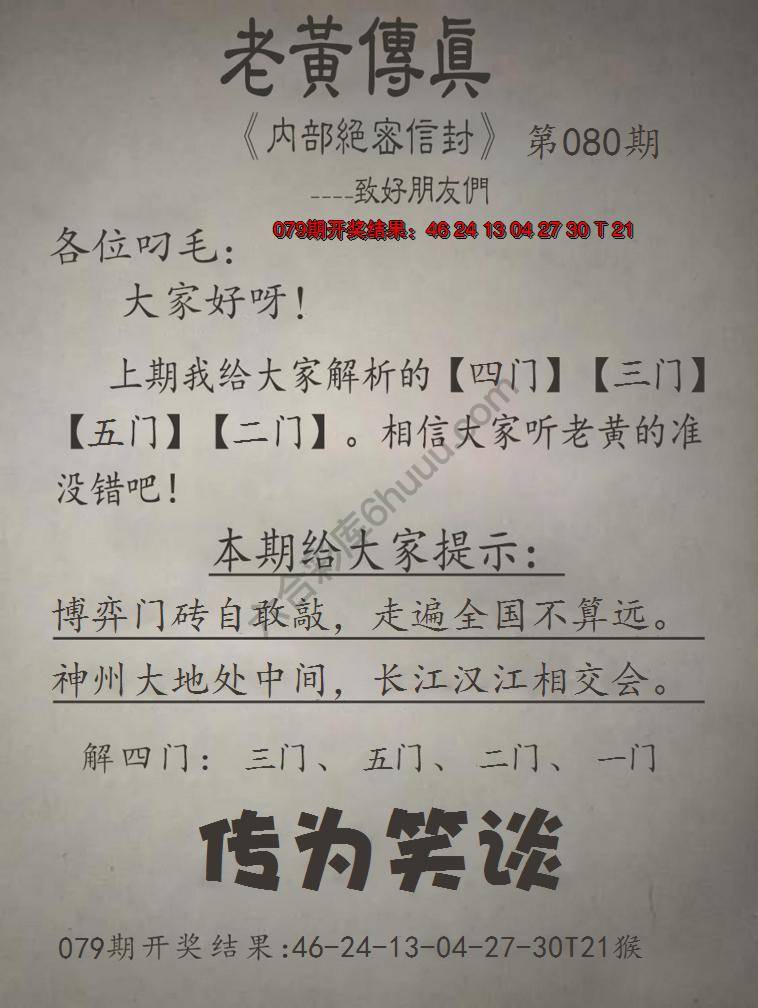 老黃傳眞
《内部絕密信封》 第080期
----致好朋友們
079期开奖结果：46 24 13 04 27 30 T 21
各位叼毛：
大家好呀！
上期我给大家解析的【四门】【三门】
【五门】【二门】。相信大家听老黄的准
没错吧！
本期给大家提示：
博弈门砖自敢敲，走遍全国不算远。
神州大地处中间，长江汉江相交会。
解四门： 三门、 五门、 二门、 一门
传为笑谈
079期开奖结果:46-24-13-04-27-30T21猴
六合彩库6huuu.com